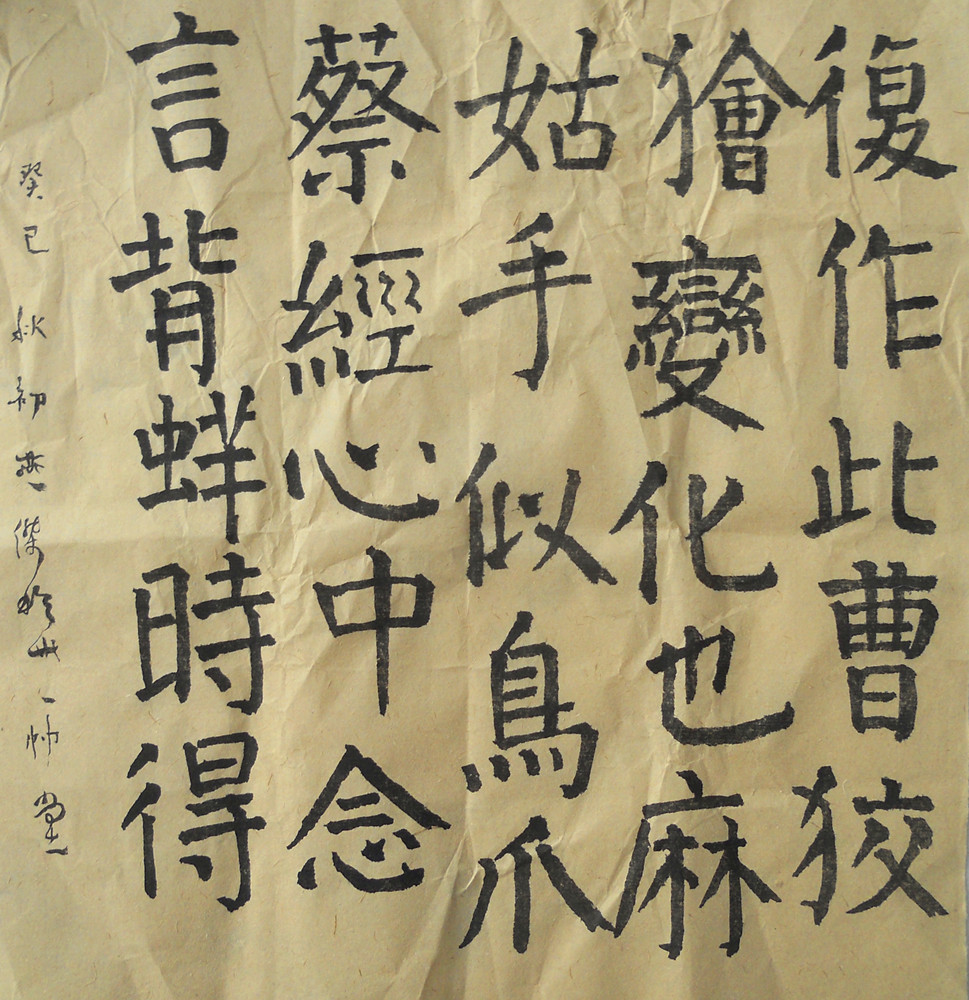 復作此曹狡
獪變化也麻
姑手似鳥爪
蔡經心中念
言背蛘時得
癸巳秋初燕傑於廿一師堂